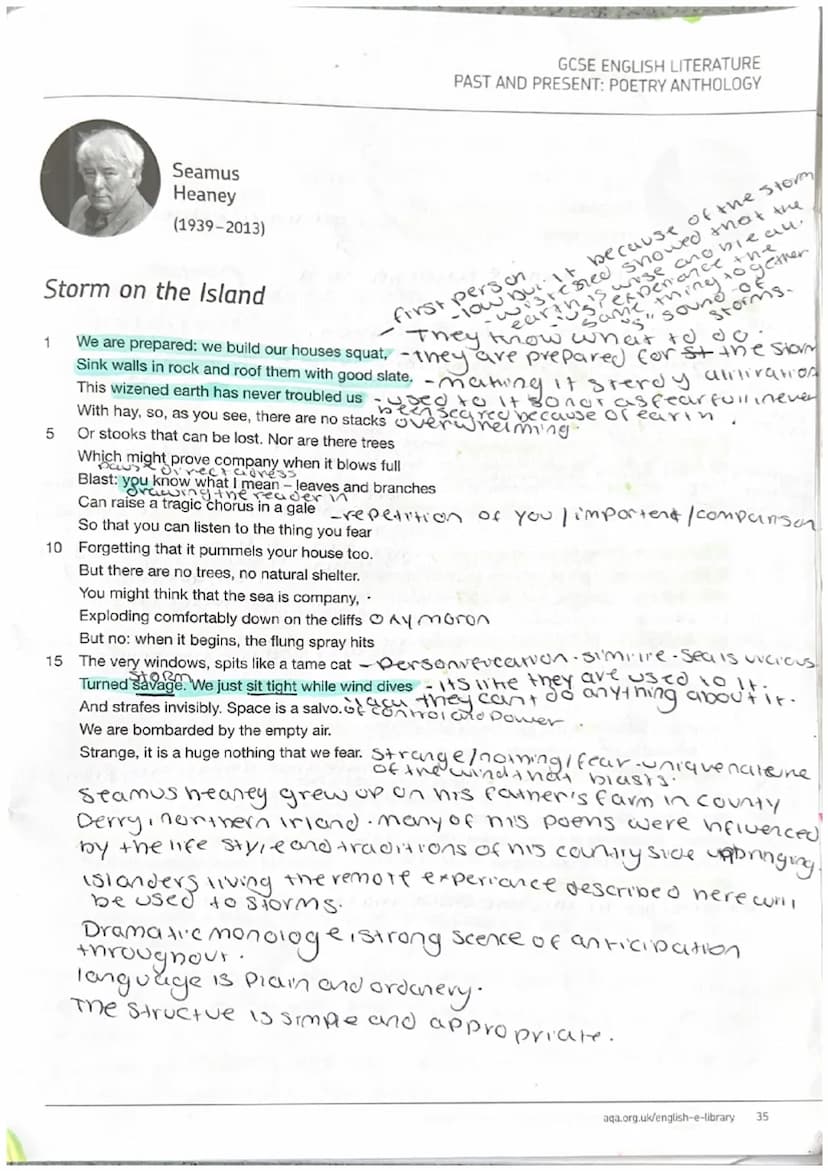 GCSE ENGLISH LITERATURE
PAST AND PRESENT: POETRY ANTHOLOGY
Seamus
Heaney
(1939–2013)
Storm on the Island
first person
-low built because of the storm
-wistened showed that the
earth is wise and
-us experiance the
same thing together
"s" sound of
storms.
They know what to do.
1 We are prepared: we build our houses squat, -they are prepared for the storm
Sink walls in rock and roof them with good slate. -making it sterdy
This wizened earth has never troubled us -used to it so not as fearfull never
been scared because of earth.
With hay, so, as you see, there are no stacks overwhelming
5 Or stooks that can be lost. Nor are there trees
Which might prove company when it blows full
pause direct adress
Blast: you know what I mean – leaves and branches
drawing the reader in
Can raise a tragic chorus in a gale -repetition of you / importent / comparison
So that you can listen to the thing you fear
10 Forgetting that it pummels your house too.
But there are no trees, no natural shelter.
You might think that the sea is company,
Exploding comfortably down on the cliffs oxymoron
But no: when it begins, the flung spray hits
15 The very windows, spits like a tame cat - simile - sea is vicious
storm
Turned savage. We just sit tight while wind dives - its like they are used to it.
they cant do anything about it.
And strafes invisibly. Space is a salvo. of control and power.
We are bombarded by the empty air.
Strange, it is a huge nothing that we fear. strange/nothing/fear-unique nature
of the wind that blasts.
Seamus heaney grew up on his father's farm in county
Derry, northern irland. many of his poems were influenced
by the life style and traditions of his country side upbringing.
islanders living the remote experiance described here will
be used to storms.
Dramatic monologe, strong scence of anticipation
throughout.
language is plain and ordanery.
The structue is simple and appropriate.
aqa.org.uk/english-e-library 35